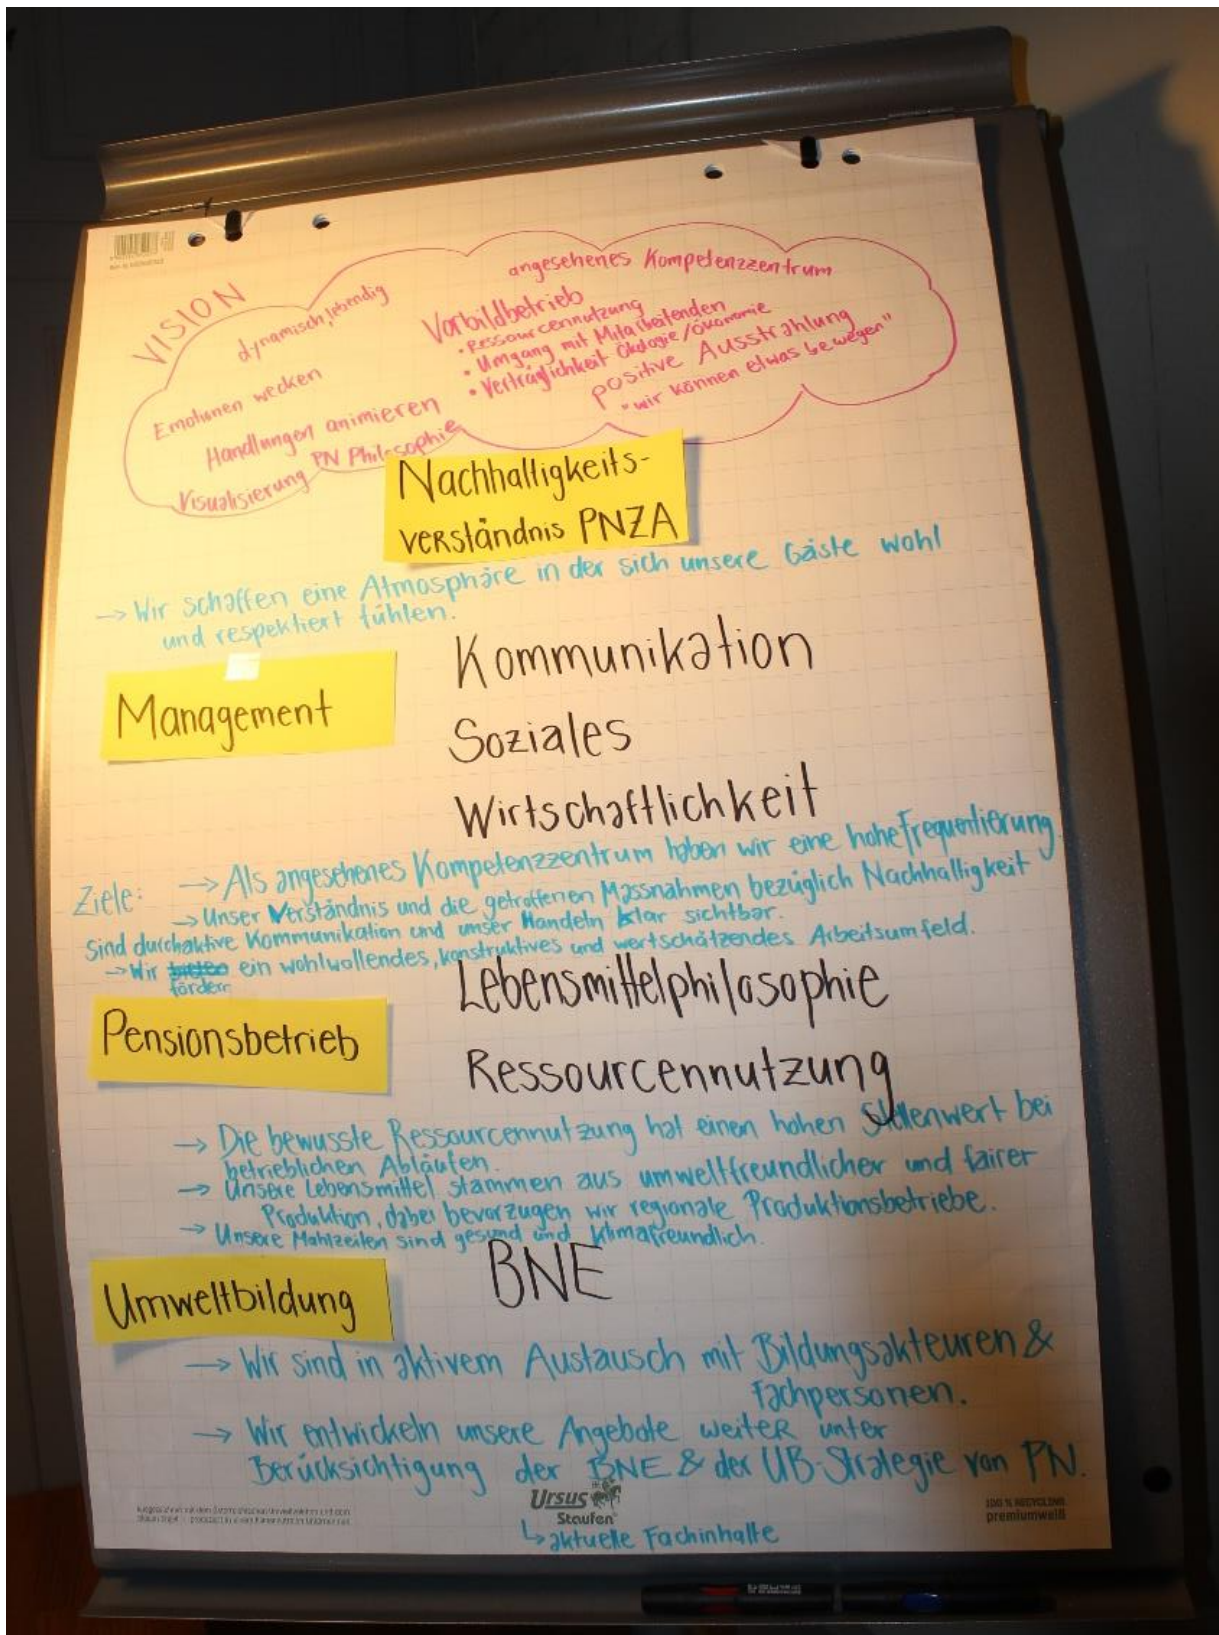 VISION
dynamisch, lebendig
Emotionen wecken
Handlungen animieren
Visualisierung PN Philosophie
angesehenes Kompetenzzentrum
Vorbildbetrieb
• Ressourcennutzung
• Umgang mit Mitarbeitenden
• Verträglichkeit Ökologie/Ökonomie
positive Ausstrahlung
"wir können etwas bewegen"
Nachhaltigkeits-
verständnis PNZA
→ Wir schaffen eine Atmosphäre in der sich unsere Gäste wohl
und respektiert fühlen.
Management
Kommunikation
Soziales
Wirtschaftlichkeit
Ziele: → Als angesehenes Kompetenzzentrum haben wir eine hohe Frequentierung.
→ Unser Verständnis und die getroffenen Massnahmen bezüglich Nachhaltigkeit
sind durch aktive Kommunikation und unser Handeln klar sichtbar.
→ Wir bieten ein wohlwollendes, konstruktives und wertschätzendes Arbeitsumfeld.
fördern
Pensionsbetrieb
Lebensmittelphilosophie
Ressourcennutzung
→ Die bewusste Ressourcennutzung hat einen hohen Stellenwert bei
betrieblichen Abläufen.
→ Unsere Lebensmittel stammen aus umweltfreundlicher und fairer
Produktion, dabei bevorzugen wir regionale Produktionsbetriebe.
→ Unsere Mahlzeiten sind gesund und klimafreundlich.
Umweltbildung
BNE
→ Wir sind in aktivem Austausch mit Bildungsakteuren &
Fachpersonen.
→ Wir entwickeln unsere Angebote weiter unter
Berücksichtigung der BNE & der UB-Strategie von PN.
↳ aktuelle Fachinhalte
Ursus
Staufen
100 % RECYCLING
premiumweiß